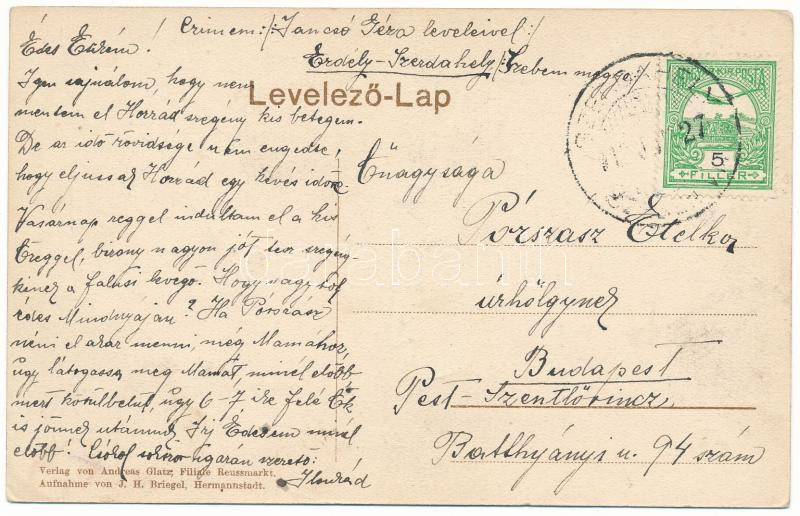 Édes Etikém!
Czimem: /: Jancsó Géza leveleivel :/
Erdély-Szerdahely /: Szeben megye
Levelező-Lap
Igen sajnálom, hogy nem
mentem el szegény kis betegem.
De az idő rövidsége nem engedte,
hogy eljussak egy kevés időre.
Vasárnap reggel indultam el a kis
bizony nagyon jót tesz szegény-
kinek a falusi levegő. Hogy vagytok
édes Mindnyájan? Ha Pórszász
néni el akar menni, még Mamához,
úgy látogassa meg Mamát, minél előbb
mert körülbelül úgy 6-7 ike felé Ők
is jönnek utánunk Irj Édesem minél
előbb! Csókol sokszor ugaran szerető:
Verlag von Andreas Glatz, Filiale Reussmarkt.
Aufnahme von J. H. Briegel, Hermannstadt.
Őnagysága
Pórszasz Etelka
úrhölgynek
Budapest
Pest-Szentlőrincz
Batthyányi u. 94 szám
MAGYAR KIR. POSTA
5
FILLÉR
27
darabanth